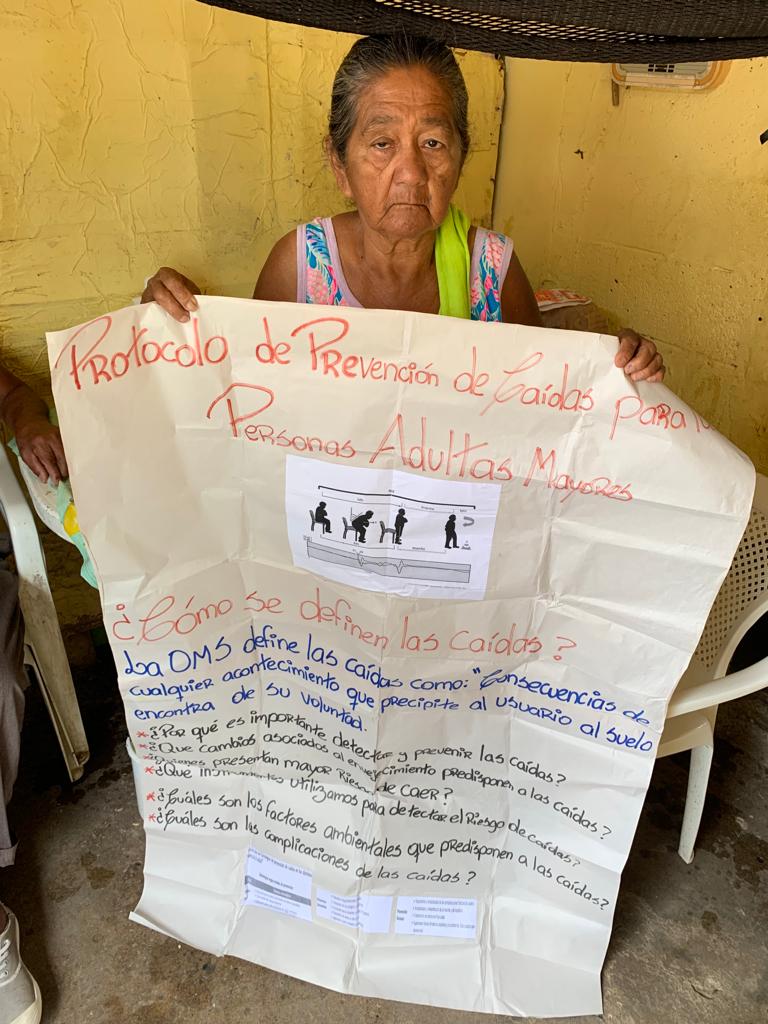 Protocolo de Prevención de Caídas para
Personas Adultas Mayores
¿Cómo se definen las caídas?
La OMS define las caídas como: "Consecuencias de
cualquier acontecimiento que precipite al usuario al suelo
encontra de su voluntad.
*¿Por qué es importante detectar y prevenir las caídas?
*¿Que cambios asociados al envejecimiento predisponen a las caídas?
¿Quienes presentan mayor Riesgo de CAER?
*¿Que instrumentos utilizamos para detectar el Riesgo de caídas?
*¿Cuáles son los factores ambientales que predisponen a las caídas?
*¿Cuáles son las complicaciones de las caídas?